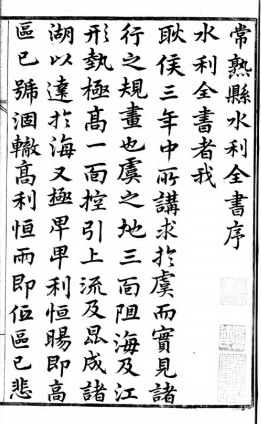 常熟縣水利全書序
水利全書者我
耿侯三年中所講求於虞而實見諸
行之規畫也虞之地三面阻海及江
形勢極高一面控引上流及昆成諸
湖以達於海又極卑卑利恒暘即高
區已號涸轍高利恒雨即低區已悲